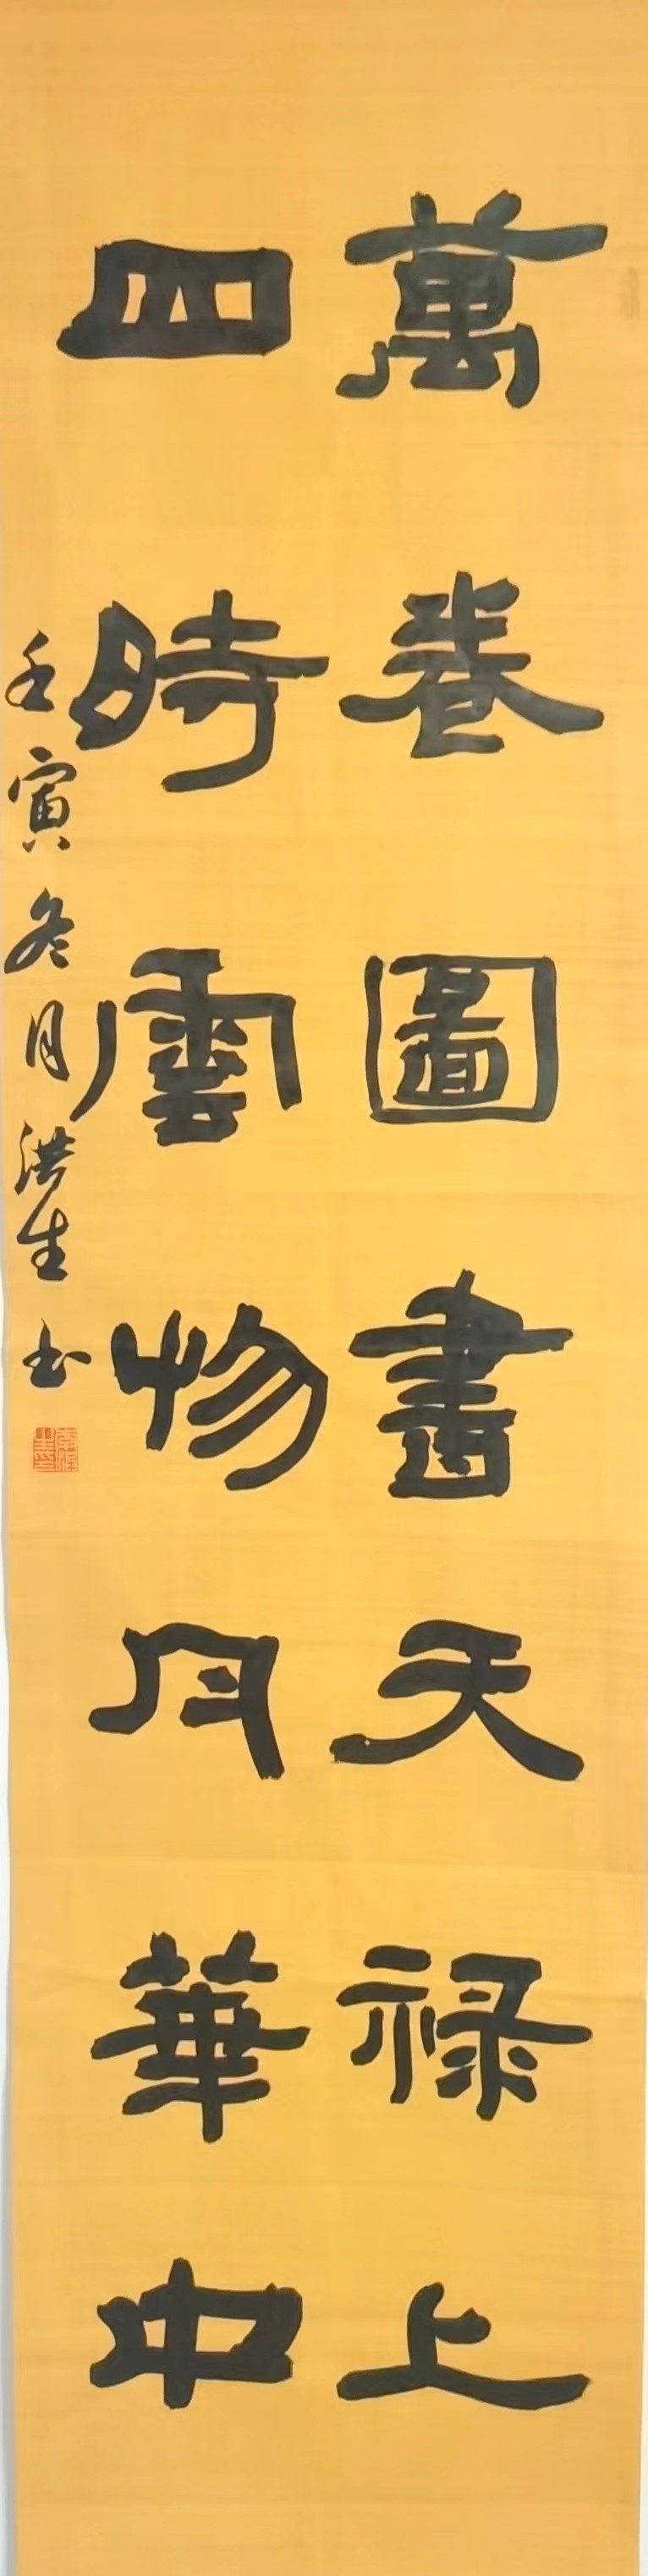 萬卷圖書天禄上
四時雲物月華中
壬寅冬月洪生书